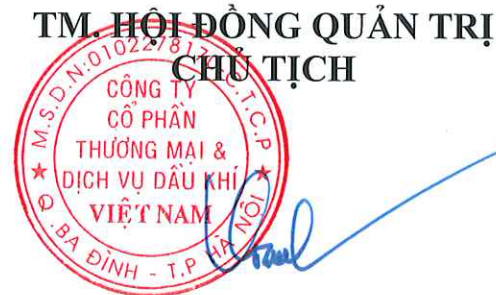 TM. HỘI ĐỒNG QUẢN TRỊ
CHỦ TỊCH
M.S.D.N:0102278170-C.T.C.P
CÔNG TY
CỔ PHẦN
THƯƠNG MẠI &
DỊCH VỤ DẦU KHÍ
VIỆT NAM
Q.BA ĐÌNH - T.P HÀ NỘI